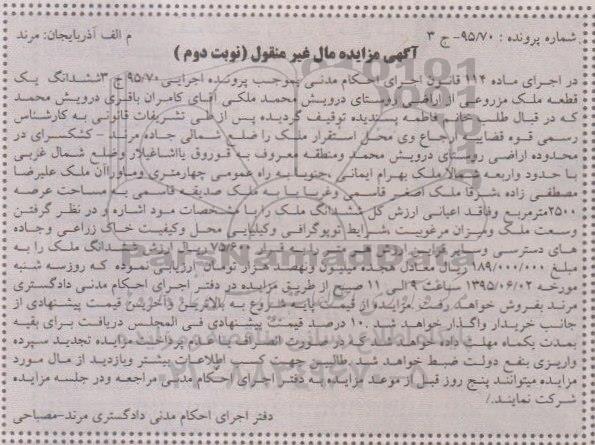 شماره پرونده : ۹۵/۷۰-ج ۳
م الف آذربایجان: مرند
آگهی مزایده مال غیر منقول (نوبت دوم )
در اجرای ماده ۱۱۴ قانون اجرای احکام مدنی بموجب پرونده اجرایی ۹۵/۷۰ج ۳ششدانگ یک
قطعه ملک مزروعی از اراضی روستای درویش محمد ملکی آقای کامران باقری درویش محمد
که در قبال طلب خانم فاطمه پسندیده توقیف گردیده پس از طی تشریفات قانونی به کارشناس
رسمی قوه قضاییه ارجاع وی محل استقرار ملک را ضلع شمالی جاده مرند - کشکسرای در
محدوده اراضی روستای درویش محمد ومنطقه معروف به قوروق یااشاغیلار وضلع شمال غربی
با حدود واربعه شمالا ملک بهرام ایمانی ،جنوبا به راه عمومی چهارمتری وماوراآن ملک علیرضا
مصطفی زاده ،شرقا ملک اصغر قاسمی وغربا با به ملک صدیقه قاسمی به مساحت عرصه
۲۵۰۰مترمربع وفاقد اعیانی ارزش کل ششدانگ ملک را با مشخصات مود اشاره و در نظر گرفتن
وسعت ملک ومیزان مرغوبیت ،شرایط توپوگرافی وکیلیایی محل وکیفیت خاک زراعی وجاده
های دسترسی وسایر قرار ارزش هر متر را به قرار ۷۵/۶۰۰ ریال ارزش ششدانگ ملک را به
مبلغ ۱۸۹/۰۰۰/۰۰۰ ریال معادل هجده میلیون ونهصد هزار تومان ارزیابی نموده که روزسه شنبه
مورخه ۱۳۹۵/۰۶/۰۲ ساعت ۹ الی ۱۱ صبح از طریق مزایده در دفتر اجرای احکام مدنی دادگستری
مرند بفروش خواهد رفت .مزایده از قیمت پایه شروع به بالاترین وآخرین قیمت پیشنهادی از
جانب خریدار واگذار خواهد شد .۱۰ درصد قیمت پیشنهادی فی المجلس دریافت برای بقیه
بمدت یکماه مهلت داده خواهد شد که در صورت انصراف یا عدم پرداخت مزایده تجدید سپرده
واریزی بنفع دولت ضبط خواهد شد .طالبین جهت کسب اطلاعات بیشتر وبازدید از مال مورد
مزایده میتوانند پنج روز قبل از موعد مزایده به دفتر اجرای احکام مدنی مراجعه ودر جلسه مزایده
شرکت نمایند./
دفتر اجرای احکام مدنی دادگستری مرند-مصباحی
ParsNamadData